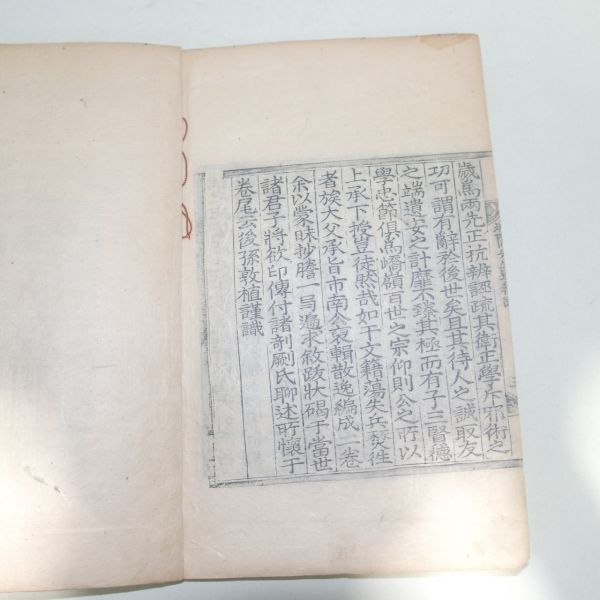 歲爲兩先正抗辨誣疏其衛正學斥邪術之
功可謂有辭於後世矣且其待人之誠取友
之端遺安之計靡不臻其極而有子三賢德
學忠節俱爲嶠嶺百世之宗仰則公之所以
上承下授豈徒然哉如干文籍蕩失兵燹往
者族大父承旨市南公裒輯散逸編成一卷
余以蒙昧抄謄一局遍求敘跋狀碣于當世
諸君子將欲印傳付諸剞劂氏聊述所懷于
卷尾云後孫敦植謹識